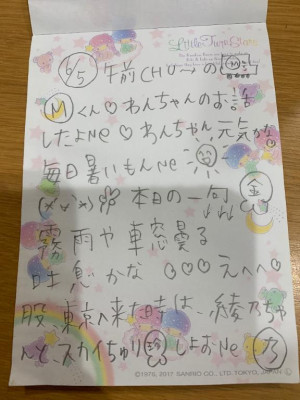 Little Twin Stars
6/5 午前CHU〜の
Mくん♡わんちゃんのお話
したよNe♡わんちゃん元気かな
毎日暑いもんNe
本日の一句 金
霧雨や車窓曇る
吐息かな ♡♡♡えへへ♡
股、東京へ来た時は、綾乃ちゃ
んとスカイちゅり しよおNe 乃
©1976, 2017 SANRIO CO., LTD. TOKYO, JAPAN